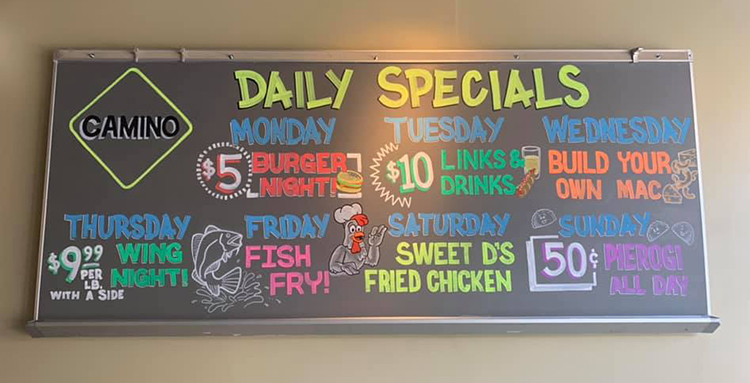 CAMINO
DAILY SPECIALS
MONDAY
$5 BURGER
NIGHT!
TUESDAY
$10 LINKS &
DRINKS
WEDNESDAY
BUILD YOUR
OWN MAC
THURSDAY
$9.99 WING
PER LB. NIGHT!
WITH A SIDE
FRIDAY
FISH
FRY!
SATURDAY
SWEET D'S
FRIED CHICKEN
SUNDAY
50¢ PIEROGI
ALL DAY